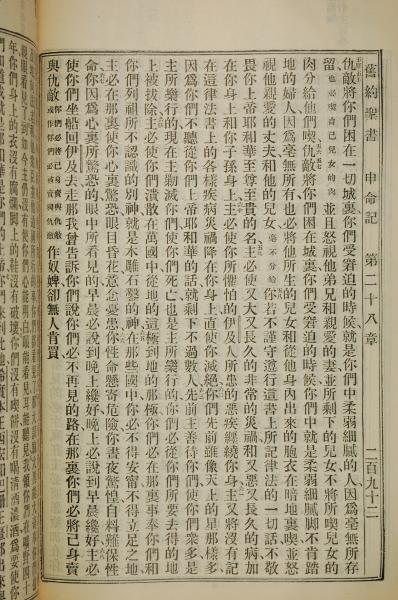 舊約聖書 申命記 第二十八章 二百九十二
仇敵將你們困在一切城裏你們受窘迫的時候就是你們中柔弱細膩的人因爲毫無所存
留也必喫自己兒女的肉並且怒視他弟兄和親愛的妻並所剩下的兒女不將所喫兒女的
肉分給他們喫仇敵將你們困在城裏你們受窘迫的時候你們中就是柔弱細膩脚不肯踏
地的婦人因爲毫無所有也必將他所生的兒女和從他身內出來的胞衣在暗地裏喫並怒
視他親愛的丈夫和他的兒女毫不分給你若不謹守遵行這書上所記律法的一切話不敬
畏你上帝耶和華至尊至貴的名主必使又大又長久的非常的災禍和又惡又長久的病加
在你身上和你子孫身上主必使你所懼怕的伊及人所患的惡疾纏繞你身主又將沒有記
在這律法書上的各樣疾病災禍降在你身上直使你滅絕你們先前雖像天上的星那樣多
因爲你們不聽從你們上帝耶和華的話就剩下不過數人先前主善待你們使你們衆多是
主所樂行的現在主勦滅你們使你們死亡也是主所樂行的你們必從你們所要去得的地
上被拔除主必使你們潰散在萬國中從地的這極到地的那極你們必在那裏事奉你們和
你們列祖所不認識的別神就是木雕石鑿的神在那些國中你必不得安甯不得立足之地
主必在那裏使你心裏驚恐眼目昏花意念憂愁你性命懸寄危險你晝夜驚惶自料難保性
命你因爲心裏所驚恐的眼中所看見的早晨必說到晚上纔好晚上必說到早晨纔好主必
使你們坐船回伊及去走那我曾告訴你們說你們必不再見的路在那裏你們必將己身賣
與仇敵作奴婢卻無人肯買